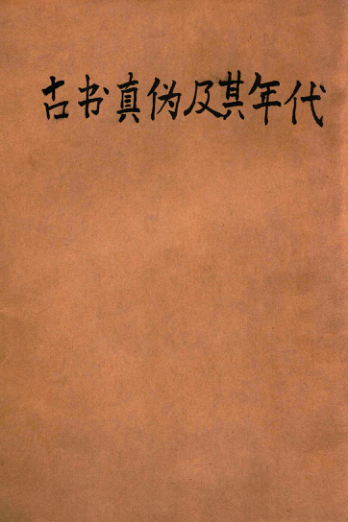 古书真伪及其年代